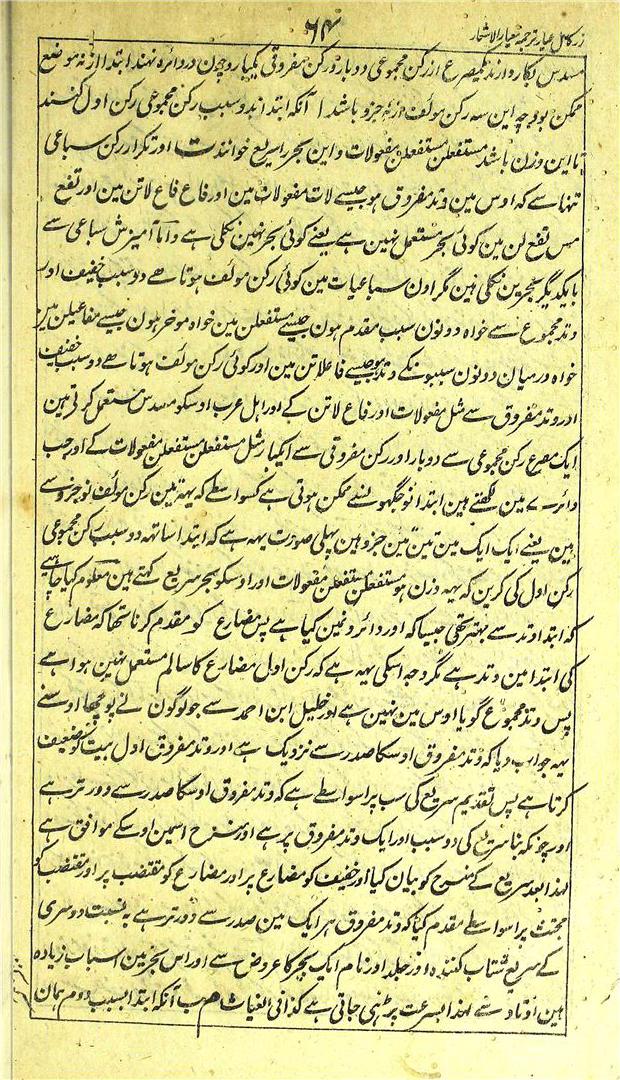 زر کامل عیار ترجمہ معیار الاشعار
۶۴
مسدس بکار دارند ہر مصرع از رکن مجموعی دو بار و رکن مفروقی یکبار و چون در دائرہ نہند ابتدا از نہ موضع
ممکن بود چہ این سہ رکن مولف از نہ جزو باشد ا آنکہ ابتدا بدو سبب رکن مجموعی رکن اول کنند
تا این وزن باشد مستفعلن مستفعلن مفعولات و این بحر را سریع خوانند ت اور تکرار رکن سباعی
تنہا سے کہ اوس مین وتد مفروق ہو جیسے لات مفعولات مین اور فاع فاع لاتن مین اور تفع
مس تفع لن مین کوئی بحر مستعمل نہین ہے یعنے کوئی بحر نہین نکلی ہے و اما آمیزش سباعی سے
بایکدیگر بحرین نکلی ہین مگر اون سباعیات مین کوئی رکن مولف ہوتا ہے دو سبب خفیف اور
وتد مجموع سے خواہ دونون سبب مقدم ہون جیسے مستفعلن مین خواہ موخر ہون جیسے مفاعیلن مین
خواہ درمیان دونون سببونکے وتد ہو جیسے فاعلاتن مین اور کوئی رکن مولف ہوتا ہے دو سبب خفیف
اور وتد مفروق سے مثل مفعولات اور فاع لاتن کے اور اہل عرب اوسکو مسدس مستعمل کرتی ہین
ایک مصرع رکن مجموعی سے دو بار اور رکن مفروقی سے ایکبار مثل مستفعلن مستفعلن مفعولات کے اور جب
دائرے مین لکھتے ہین ابتدا نو جگہوں سے ممکن ہوتی ہے کسواسطے کہ یہہ تین رکن مولف نو جزو سے
ہین یعنے ایک ایک مین تین تین جزو ہین پہلی صورت یہہ ہے کہ ابتدا ساتھہ دو سبب رکن مجموعی
رکن اول کی کرین کہ یہہ وزن ہو مستفعلن مستفعلن مفعولات اور اوسکو بحر سریع کہتے ہین معلوم کیا چاہیے
کہ ابتدا وتد سے بہتر تھی جیسا کہ اور دائرونمین کیا ہے پس مضارع کو مقدم کرنا تھا کہ مضارع
کی ابتدا مین وتد ہے مگر وجہ اسکی یہہ ہے کہ رکن اول مضارع کا سالم مستعمل نہین ہوا ہے
پس وتد مجموع گویا اوس مین نہین ہے اور خلیل ابن احمد سے جو لوگون نے پوچھا اوسنے
یہہ جواب دیا کہ وتد مفروق اوسکا صدر سے نزدیک ہے اور وتد مفروق اول بیت کو ضعیف
کرتا ہے پس تقدیم سریع کی سب پر اسواسطے ہے کہ وتد مفروق اوسکا صدر سے دور تر ہے
اور چونکہ بنا سریع کی دو سبب اور ایک وتد مفروق پر ہے اور منسرح اسمین اوسکے موافق ہے
لہذا بعد سریع کے منسرح کو بیان کیا اور خفیف کو مضارع پر اور مضارع کو مقتضب پر اور مقتضب کو
مجتث پر اسواسطے مقدم کیا کہ وتد مفروق ہر ایک مین صدر سے دور تر ہے بہ نسبت دوسری
کے سریع شتاب کنندہ اور جلد اور نام ایک بحر کا عروض سے اور اس بحر مین اسباب زیادہ
ہین اوتاد سے لہذا بسرعت پڑہی جاتی ہے کذا فی الغیاث م ب آنکہ ابتدا بسبب دوم ہمان